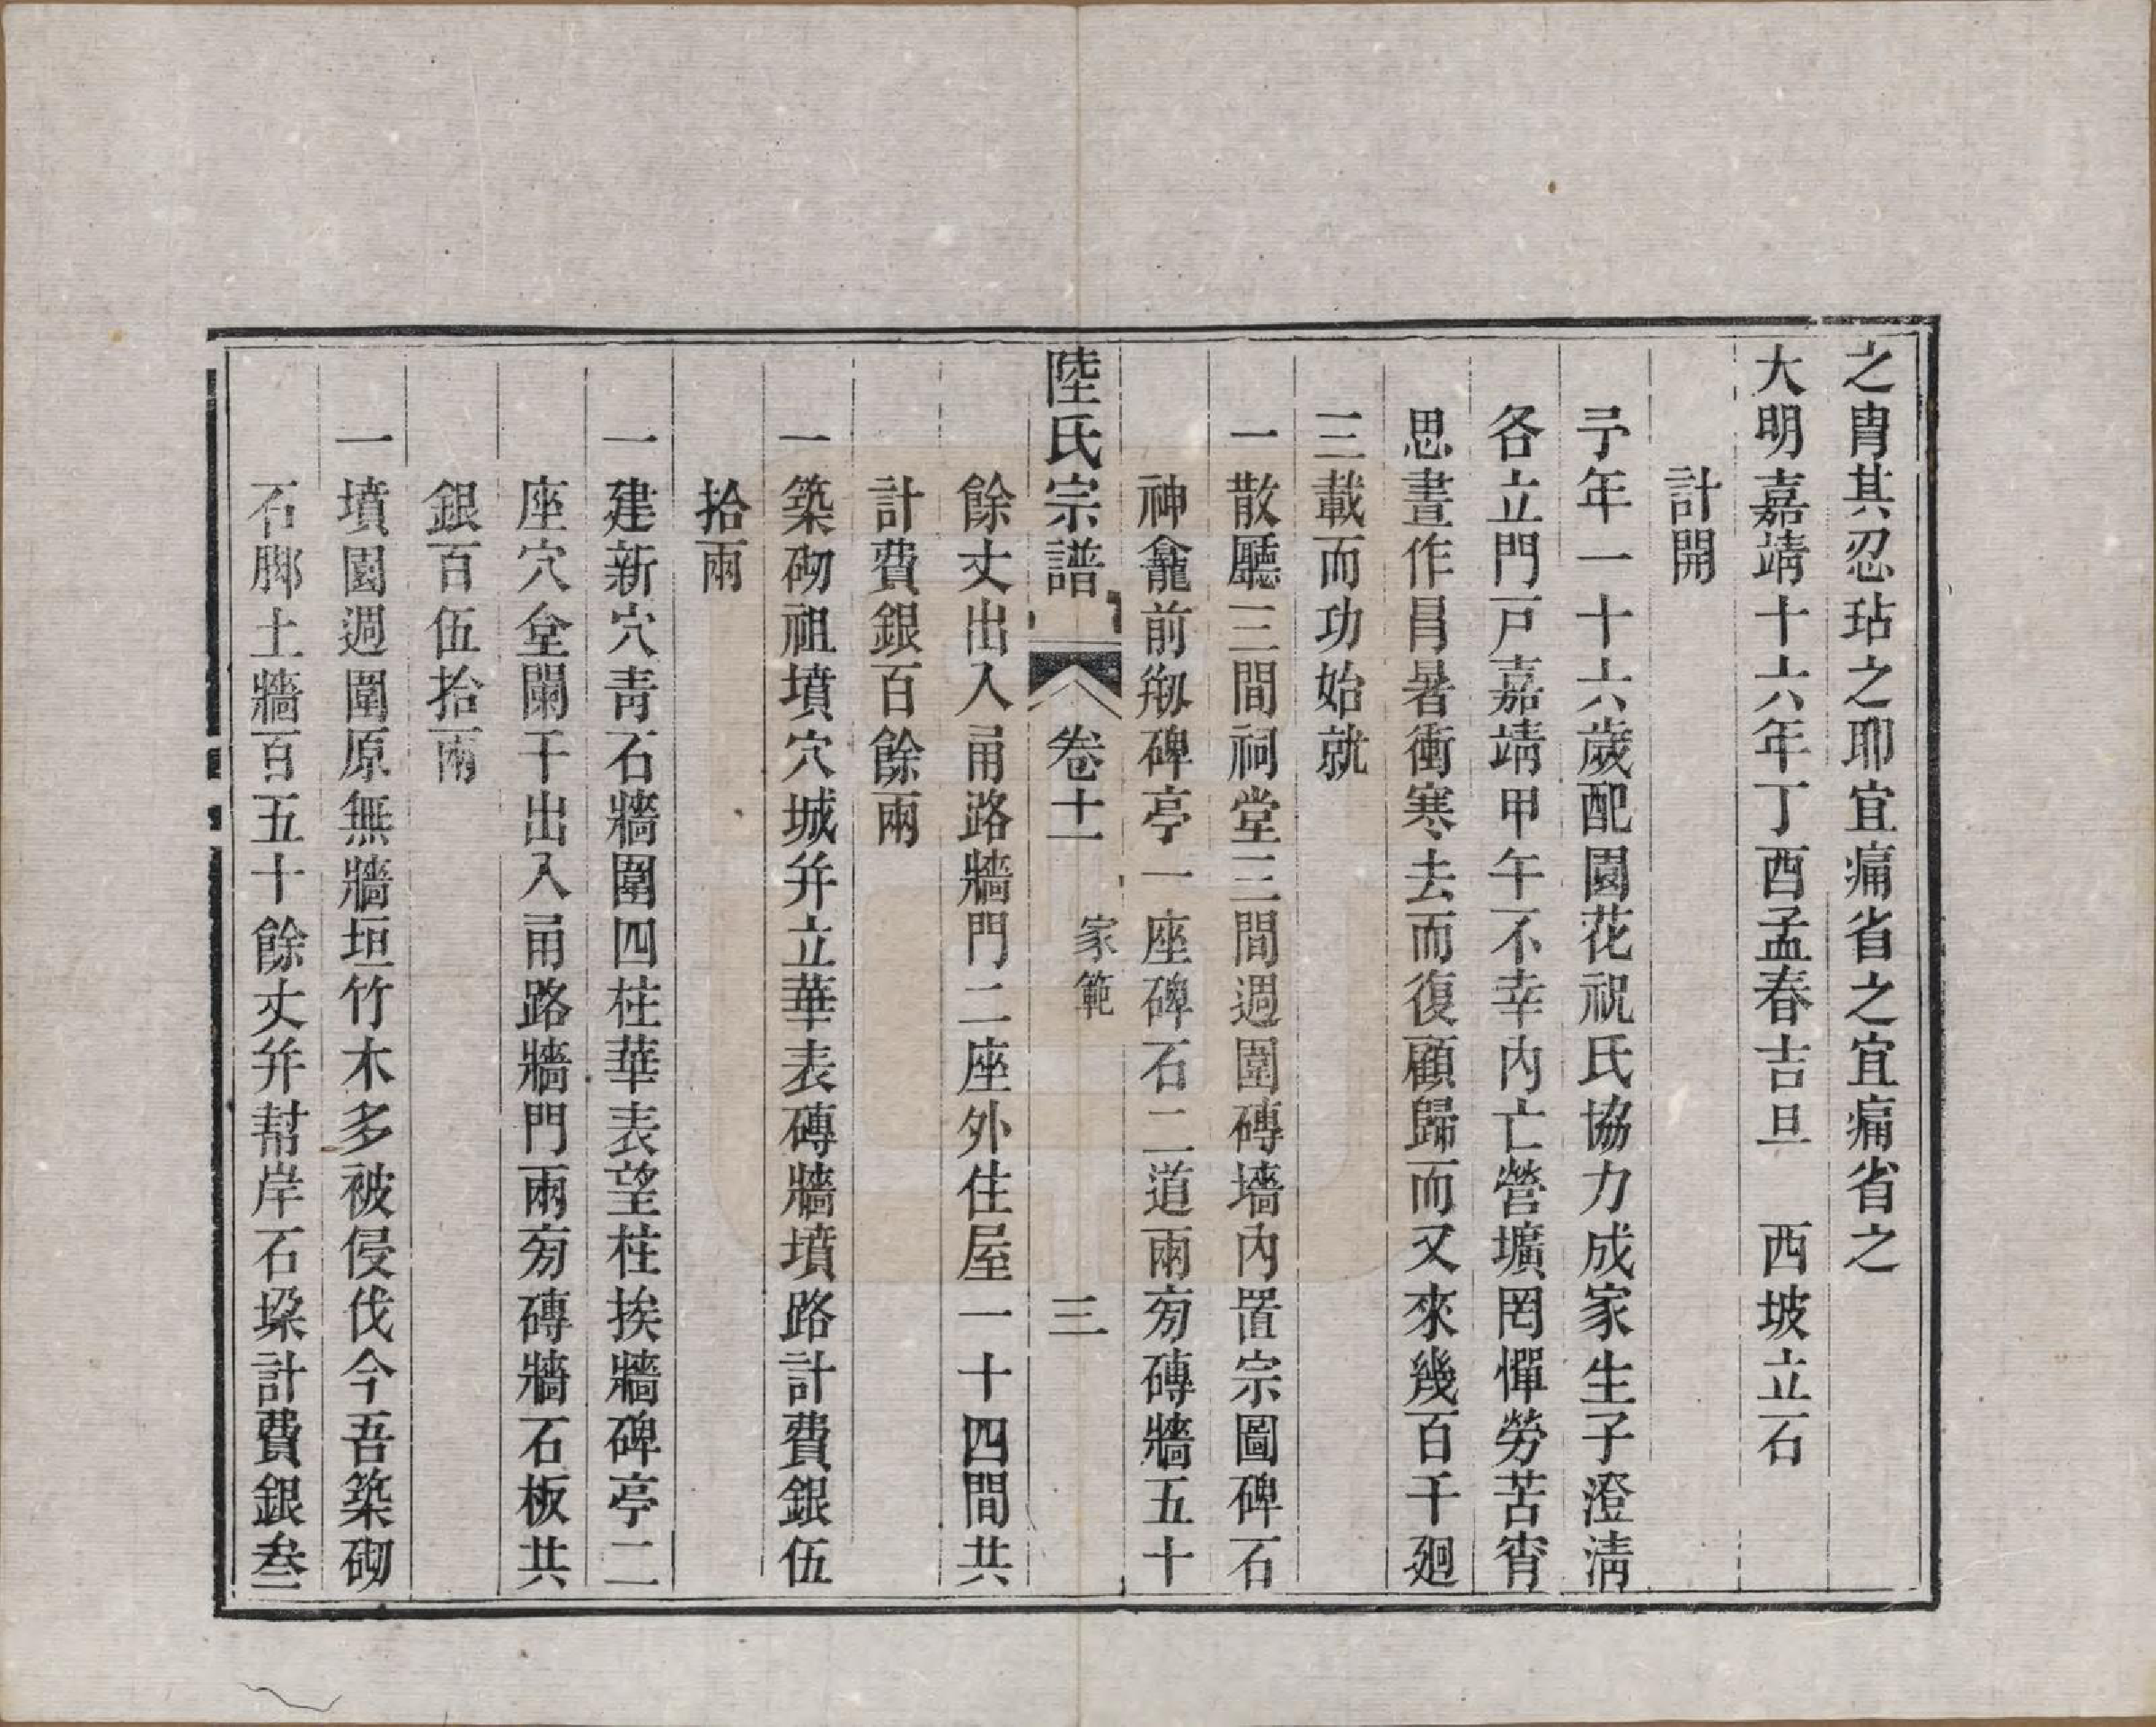 之胄其忍玷之耶宜痛省之宜痛省之
大明嘉靖十六年丁酉孟春吉旦　西坡立石
計開
予年一十六歲配園花祝氏協力成家生子澄清
各立門戸嘉靖甲午不幸内亡營壙罔憚勞苦宵
思晝作昌暑衝寒去而復顧歸而又來幾百千廻
三載而功始就
一散廳三間祠堂三間週圍磚墻内置宗圖碑石
神龕前剏碑亭一座碑石二道兩旁磚牆五十
陸氏宗譜　卷十一　家範　三
餘丈出入甬路牆門二座外住屋一十四間共
計費銀百餘兩
一築砌祖墳穴城并立華表磚牆墳路計費銀伍
拾兩
一建新穴青石牆圍四柱華表望柱挨牆碑亭二
座穴坣闌干出入甬路牆門兩旁磚牆石板共
銀百伍拾兩
一墳園週圍原無牆垣竹木多被侵伐今吾築砌
石脚土牆百五十餘丈并幇岸石垜計費銀叁